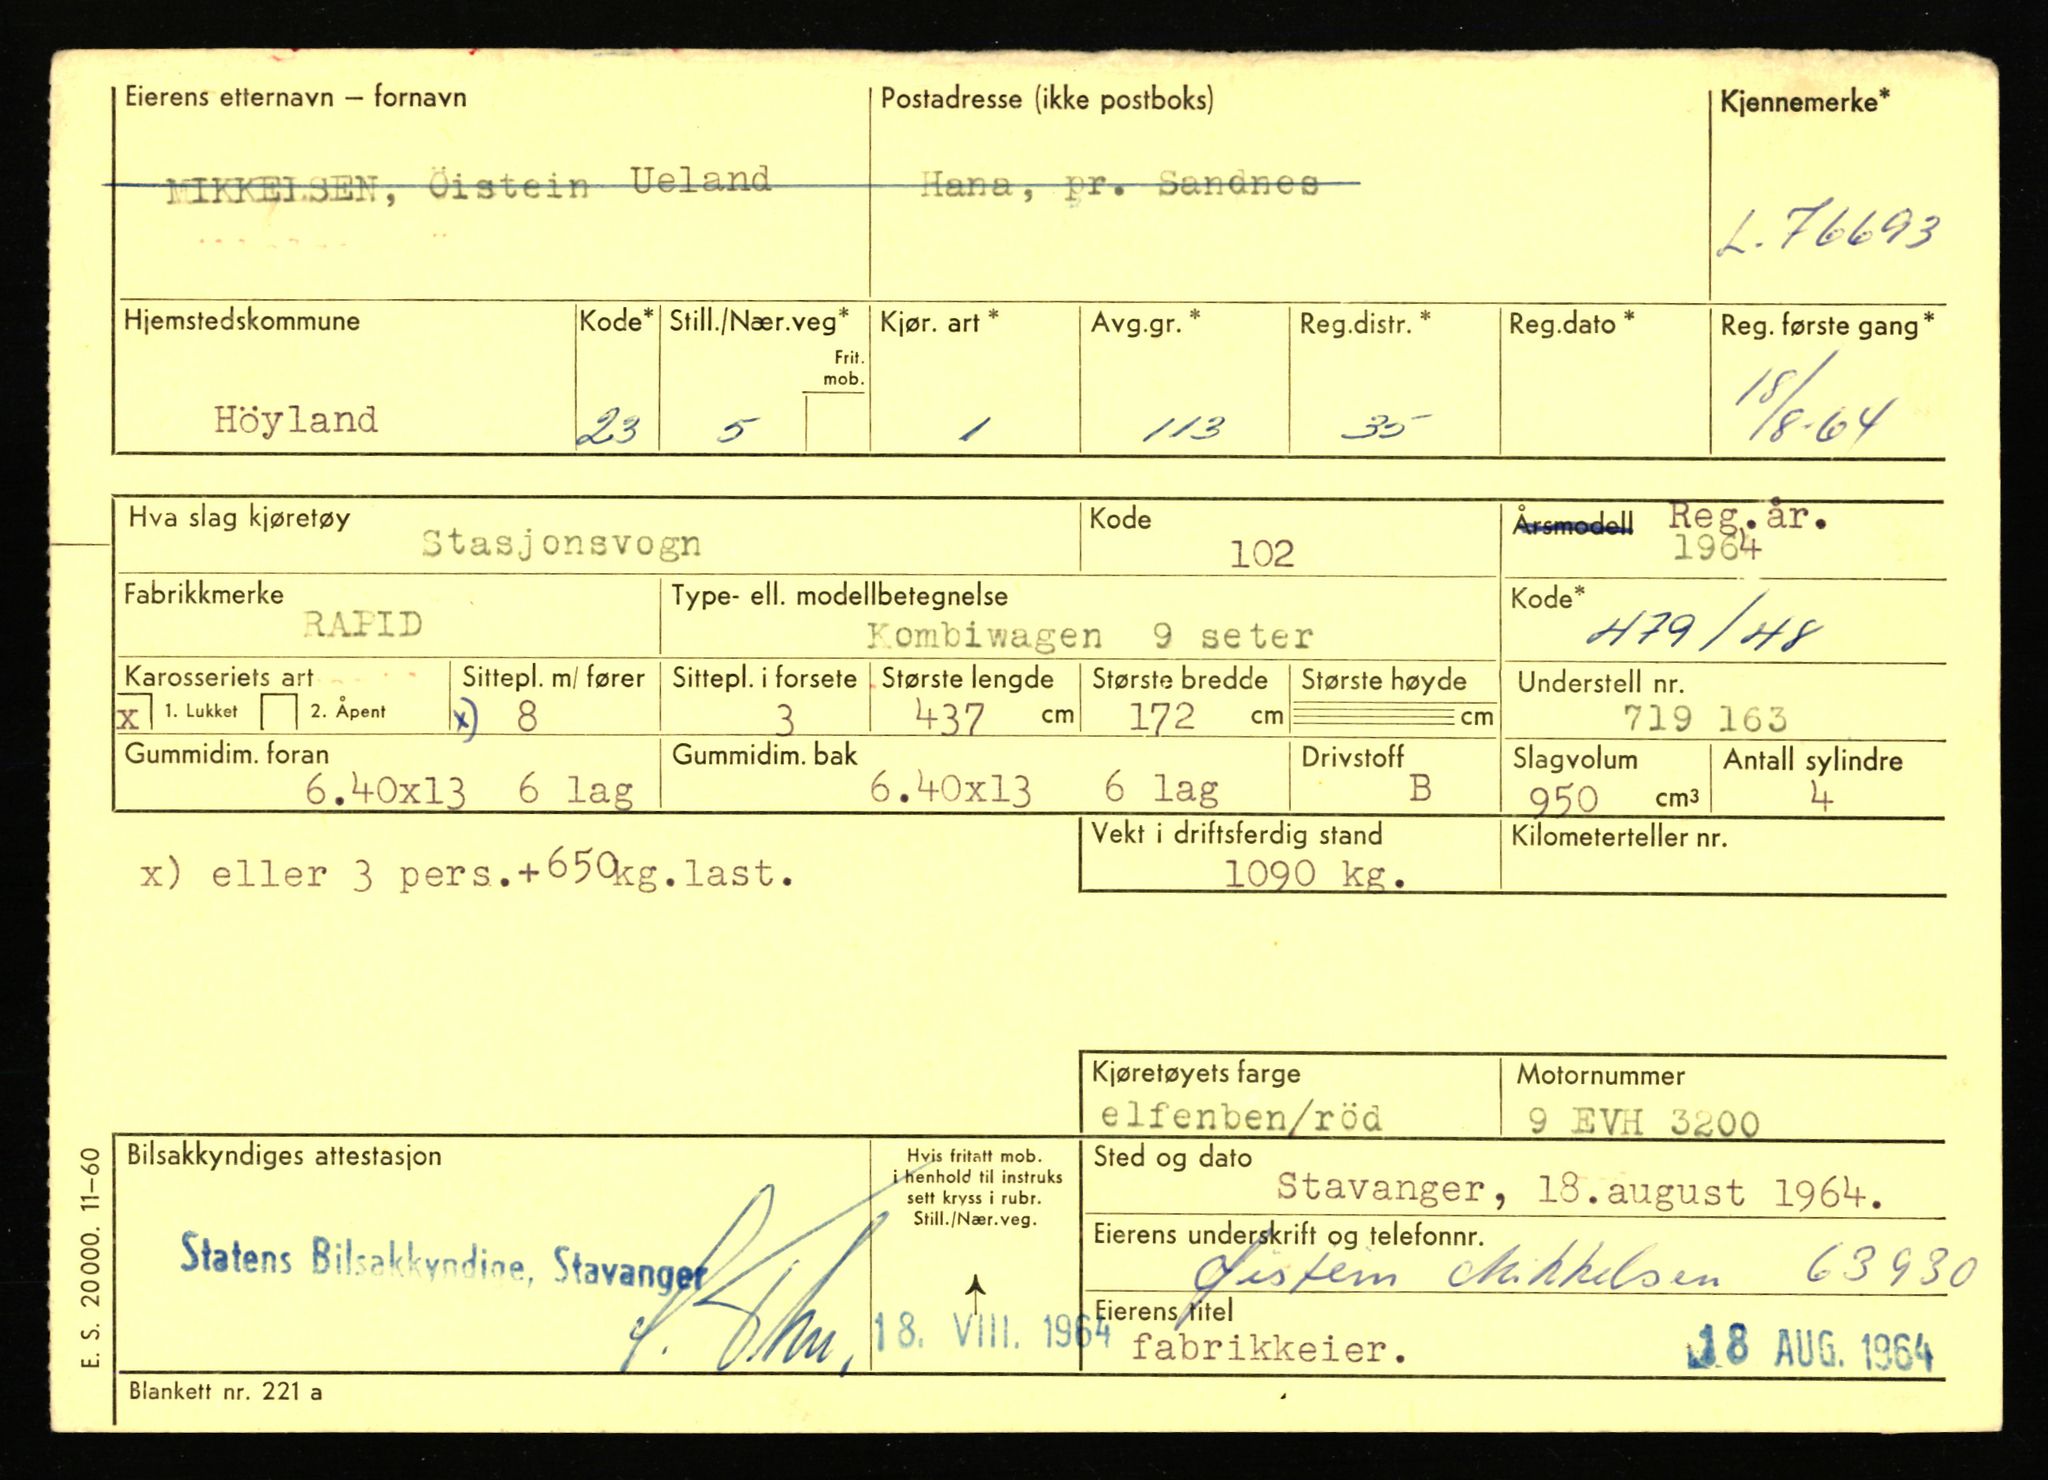 Eierens etternavn – fornavn
Postadresse (ikke postboks)
Kjennemerke*
MIKKELSEN, Öistein Ueland
Hana, pr. Sandnes
L. 76693
Hjemstedskommune
Kode*
Still./Nær.veg*
Kjør. art *
Avg.gr. *
Reg.distr. *
Reg.dato *
Reg. første gang*
Frit.
mob.
Höyland
23
5
1
113
35
18/8-64
Hva slag kjøretøy
Stasjonsvogn
Kode
102
Årsmodell Reg.år.
1964
Fabrikkmerke
RAPID
Type- ell. modellbetegnelse
Kombiwagen 9 seter
Kode*
479/48
Karosseriets art
x 1. Lukket 2. Åpent
Sittepl. m/ fører
x) 8
Sittepl. i forsete
3
Største lengde
437 cm
Største bredde
172 cm
Største høyde
cm
Understell nr.
719 163
Gummidim. foran
6.40x13 6 lag
Gummidim. bak
6.40x13 6 lag
Drivstoff
B
Slagvolum
950 cm³
Antall sylindre
4
Vekt i driftsferdig stand
1090 kg.
Kilometerteller nr.
x) eller 3 pers.+650kg.last.
Kjøretøyets farge
elfenben/röd
Motornummer
9 EVH 3200
Bilsakkyndiges attestasjon
Hvis fritatt mob.
i henhold til instruks
sett kryss i rubr.
Still./Nær.veg.
Sted og dato
Stavanger, 18.august 1964.
Statens Bilsakkyndige, Stavanger
18. VIII. 1964
Eierens underskrift og telefonnr.
Øistein Mikkelsen 63930
Eierens titel
fabrikkeier.
18 AUG. 1964
Blankett nr. 221 a
E. S. 20000. 11–60